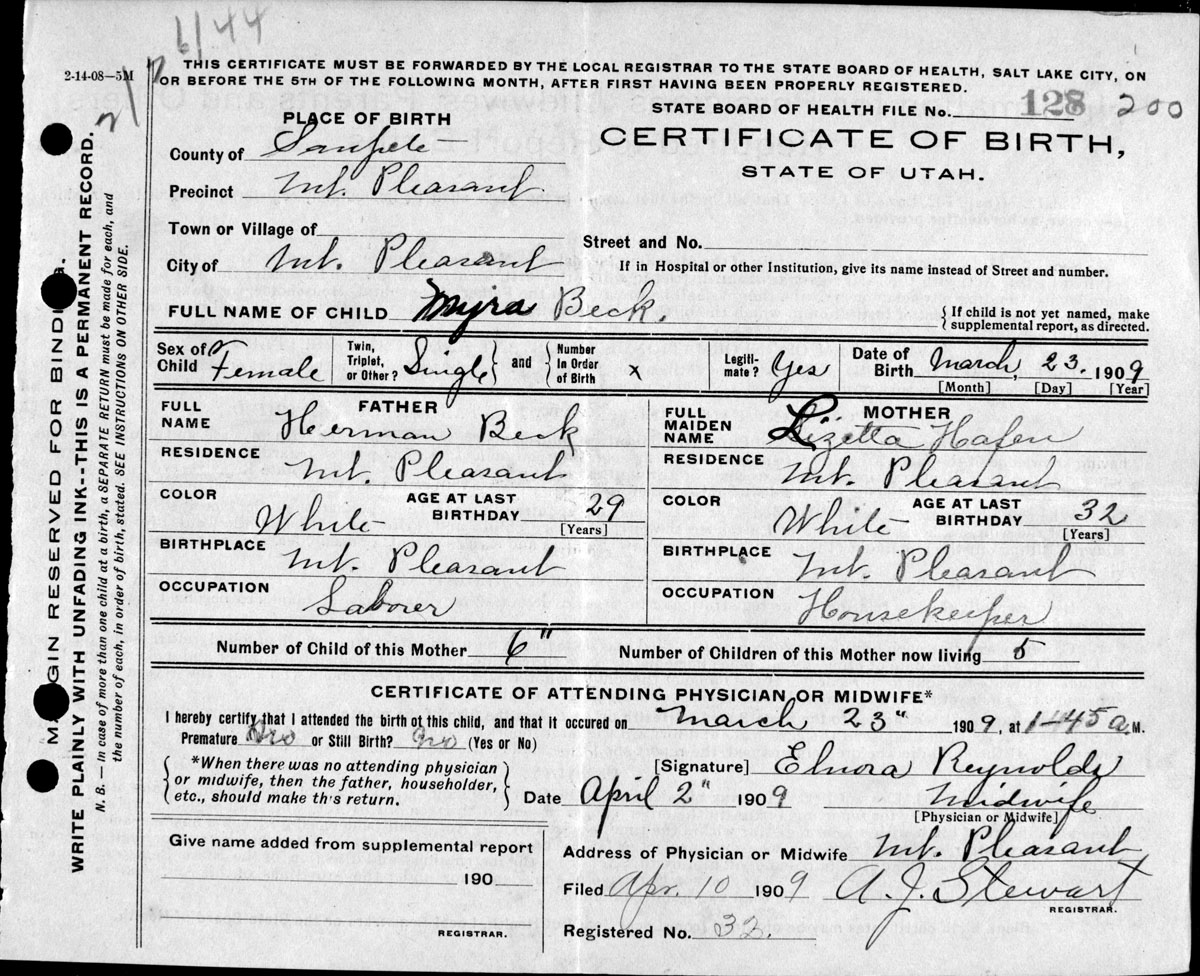 6/44
2-14-08—5M
THIS CERTIFICATE MUST BE FORWARDED BY THE LOCAL REGISTRAR TO THE STATE BOARD OF HEALTH, SALT LAKE CITY, ON
OR BEFORE THE 5TH OF THE FOLLOWING MONTH, AFTER FIRST HAVING BEEN PROPERLY REGISTERED.
STATE BOARD OF HEALTH FILE No. 128 200
PLACE OF BIRTH
CERTIFICATE OF BIRTH,
STATE OF UTAH.
County of Sanpete
Precinct Mt. Pleasant
Town or Village of
Street and No.
City of Mt. Pleasant
If in Hospital or other Institution, give its name instead of Street and number.
FULL NAME OF CHILD Myra Beck. { If child is not yet named, make
supplemental report, as directed.
Sex of Child Female Twin, Triplet, or Other? Single and Number in Order of Birth x Legitimate? Yes Date of Birth March, 23. 1909
[Month] [Day] [Year]
FATHER
FULL NAME Herman Beck
RESIDENCE Mt. Pleasant
COLOR White AGE AT LAST BIRTHDAY 29 [Years]
BIRTHPLACE Mt. Pleasant
OCCUPATION Laborer
MOTHER
FULL MAIDEN NAME Lizetta Hafen
RESIDENCE Mt. Pleasant
COLOR White AGE AT LAST BIRTHDAY 32 [Years]
BIRTHPLACE Mt. Pleasant
OCCUPATION Housekeeper
Number of Child of this Mother 6" Number of Children of this Mother now living 5
CERTIFICATE OF ATTENDING PHYSICIAN OR MIDWIFE*
I hereby certify that I attended the birth of this child, and that it occured on March 23" 1909, at 1-45 a. M.
Premature No or Still Birth? No (Yes or No)
*When there was no attending physician
or midwife, then the father, householder,
etc., should make th's return.
[Signature] Elnora Reynolds
Date April 2" 1909 Midwife
[Physician or Midwife]
Give name added from supplemental report
190
REGISTRAR.
Address of Physician or Midwife Mt. Pleasant
Filed Apr. 10 1909 A. J. Stewart
REGISTRAR.
Registered No. 32.
MA GIN RESERVED FOR BINDI G.
WRITE PLAINLY WITH UNFADING INK--THIS IS A PERMANENT RECORD.
N. B.—In case of more than one child at a birth, a SEPARATE RETURN must be made for each, and
the number of each, in order of birth, stated. SEE INSTRUCTIONS ON OTHER SIDE.